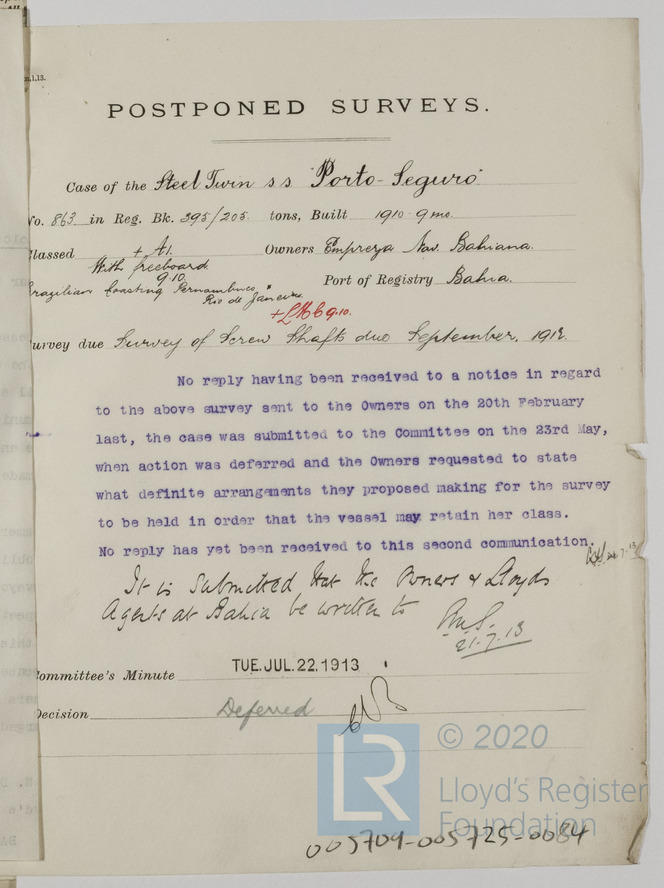 POSTPONED SURVEYS.
Case of the Steel Twin s s "Porto-Seguro"
No. 863 in Reg. Bk. 395/205 tons, Built 1910-9mo.
Classed + A1. Owners Empreza Nav. Bahiana.
With freeboard
9.10. Port of Registry Bahia.
Brazilian Coasting Pernambuco,
Rio de Janeiro
+LMC 9.10.
Survey due Survey of Screw Shafts due September, 1912.
No reply having been received to a notice in regard
to the above survey sent to the Owners on the 20th February
last, the case was submitted to the Committee on the 23rd May,
when action was deferred and the Owners requested to state
what definite arrangements they proposed making for the survey
to be held in order that the vessel may retain her class.
No reply has yet been received to this second communication.
It is submitted that the Owners & Lloyds
Agents at Bahia be written to
21.7.13
Committee's Minute TUE. JUL. 22. 1913
Decision Deferred
LR
© 2020
Lloyd's Register
Foundation
005709-005725-0084